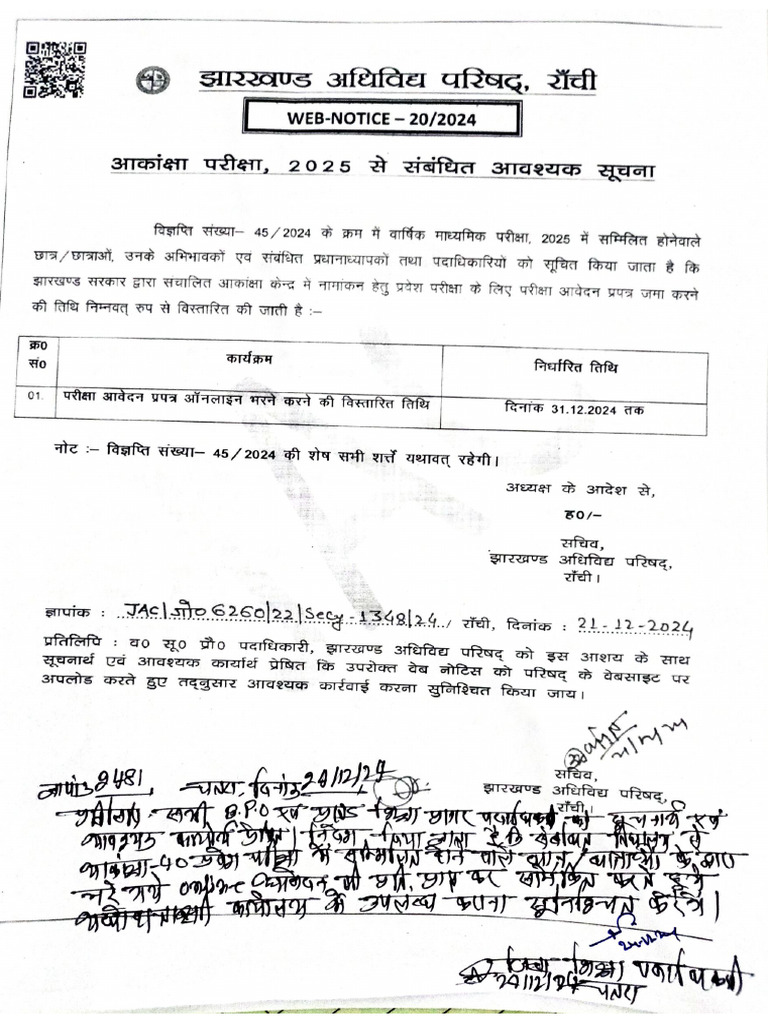 झारखण्ड अधिविद्य परिषद्, राँची
WEB-NOTICE – 20/2024
आकांक्षा परीक्षा, 2025 से संबंधित आवश्यक सूचना
विज्ञप्ति संख्या– 45/2024 के क्रम में वार्षिक माध्यमिक परीक्षा, 2025 में सम्मिलित होनेवाले
छात्र/छात्राओं, उनके अभिभावकों एवं संबंधित प्रधानाध्यापकों तथा पदाधिकारियों को सूचित किया जाता है कि
झारखण्ड सरकार द्वारा संचालित आकांक्षा केन्द्र में नामांकन हेतु प्रवेश परीक्षा के लिए परीक्षा आवेदन प्रपत्र जमा करने
की तिथि निम्नवत् रुप से विस्तारित की जाती है :–
क्र0 सं0 कार्यक्रम निर्धारित तिथि
01. परीक्षा आवेदन प्रपत्र ऑनलाइन भरने करने की विस्तारित तिथि दिनांक 31.12.2024 तक
नोट :– विज्ञप्ति संख्या– 45/2024 की शेष सभी शर्त्तें यथावत् रहेगी।
अध्यक्ष के आदेश से,
ह0/-
सचिव,
झारखण्ड अधिविद्य परिषद्,
राँची।
ज्ञापांक : JAC/गो0 6260/22/Secy-1348/24/ राँची, दिनांक : 21-12-2024
प्रतिलिपि : व0 सू0 प्रौ0 पदाधिकारी, झारखण्ड अधिविद्य परिषद् को इस आशय के साथ
सूचनार्थ एवं आवश्यक कार्यार्थ प्रेषित कि उपरोक्त वेब नोटिस को परिषद् के वेबसाइट पर
अपलोड करते हुए तद्नुसार आवश्यक कार्रवाई करना सुनिश्चित किया जाय।
सचिव,
झारखण्ड अधिविद्य परिषद्,
राँची।
ज्ञापांक 2481 चतरा, दिनांक 24/12/24
प्रतिलिपि: सभी B.P.O एवं प्रखंड शिक्षा प्रसार पदाधिकारी को सूचनार्थ एवं
आवश्यक कार्यार्थ प्रेषित। निदेश दिया जाता है कि संबंधित विद्यालय से
आकांक्षा-40 प्रवेश परीक्षा में सम्मिलित होने वाले छात्र/छात्राओं के द्वारा
भरे गये online आवेदन की प्रति प्राप्त कर
अधोहस्ताक्षरी कार्यालय में उपलब्ध कराना सुनिश्चित करेंगे।
जिला शिक्षा पदाधिकारी
24/12/24 चतरा